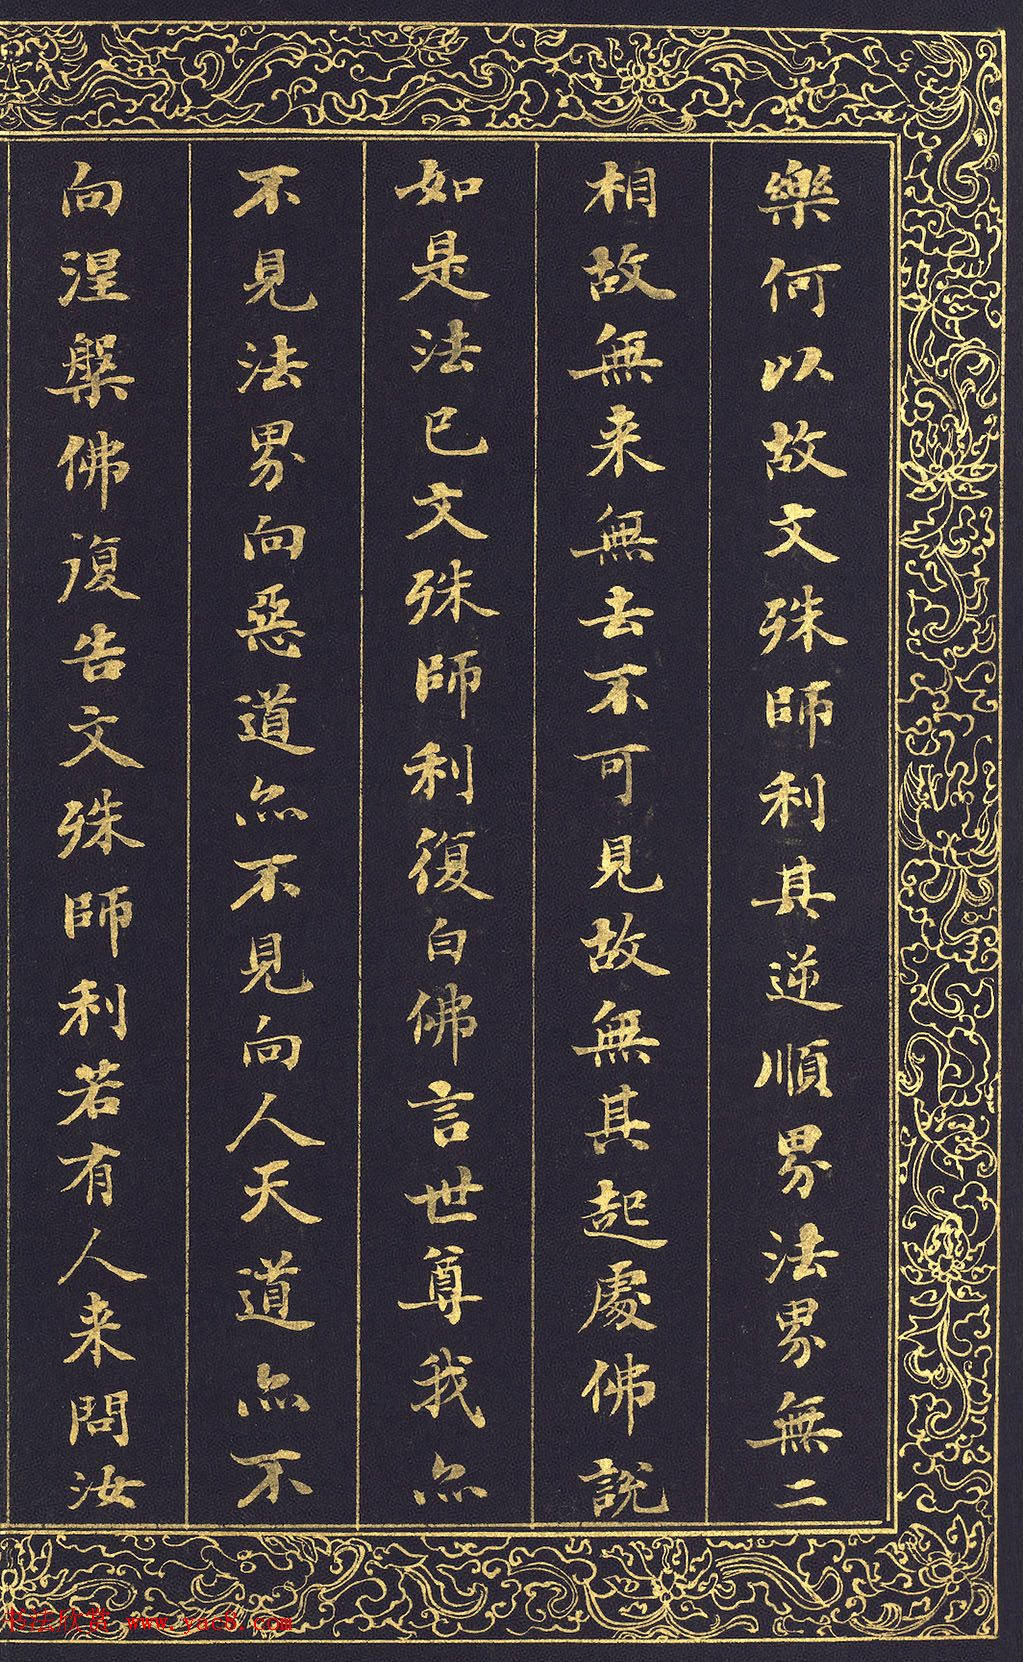 樂何以故文殊師利其逆順界法界無二
相故無来無去不可見故無其起處佛說
如是法已文殊師利復白佛言世尊我亦
不見法界向惡道亦不見向人天道亦不
向涅槃佛復告文殊師利若有人来問汝
书法欣赏 www.yac8.com